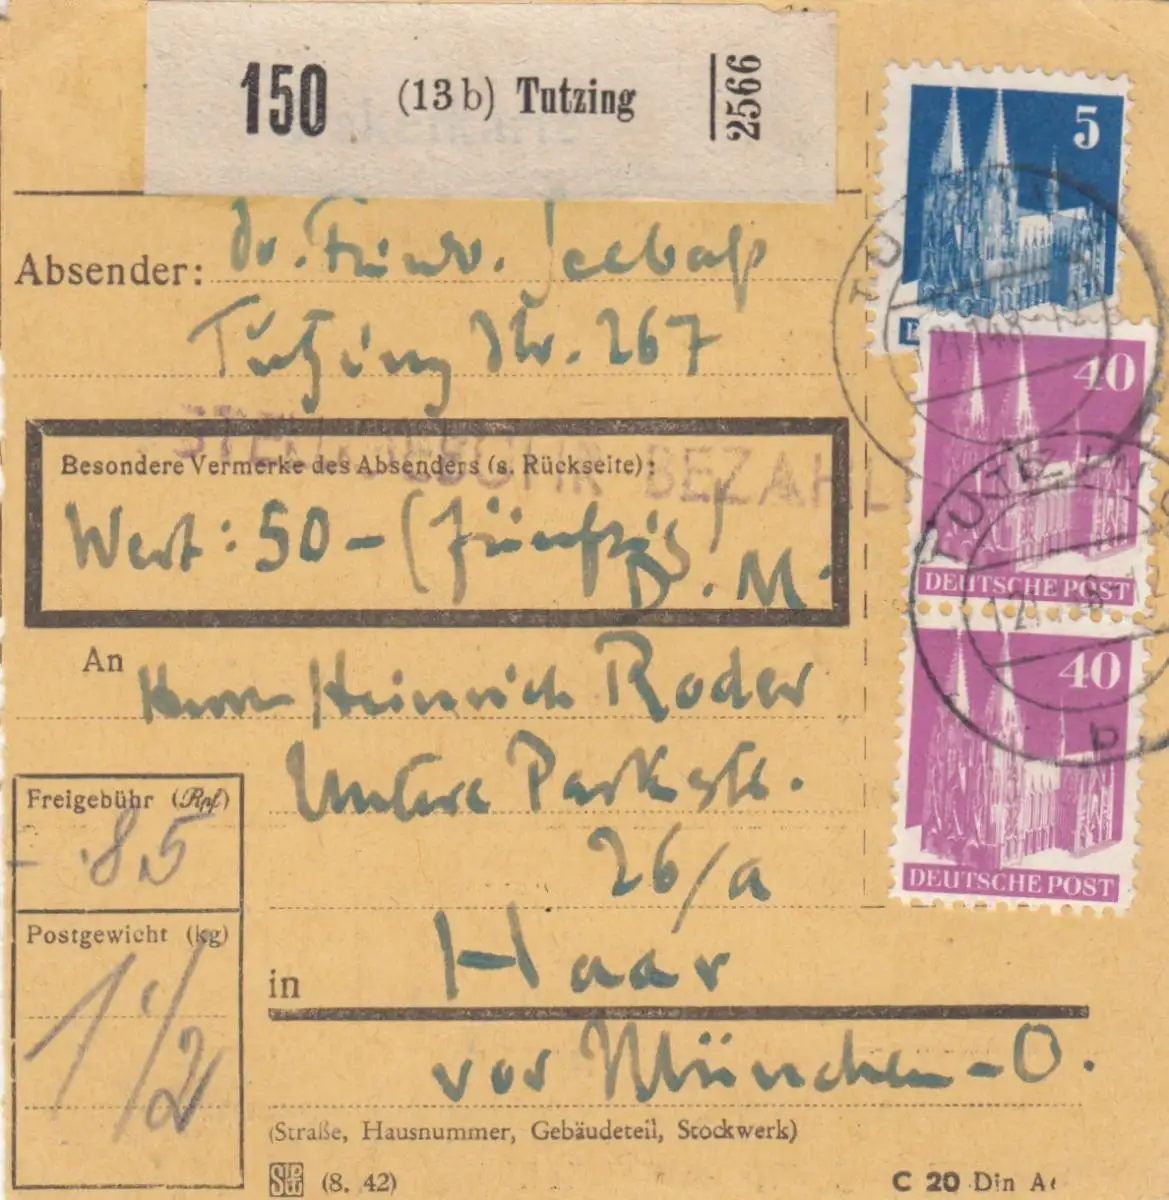 150 (13b) Tutzing 2566
Absender: Dr. Friedr. Seebaß
Tutzing Nr. 267
BEZAHL
Besondere Vermerke des Absenders (s. Rückseite):
Wert: 50 - (fünfzig)
D. M.
An Herrn Heinrich Roder
Untere Parkstr.
26/a
in Haar
vor München-O.
(Straße, Hausnummer, Gebäudeteil, Stockwerk)
(8. 42)
C 20 Din
Freigebühr (Rpf)
85
Postgewicht (kg)
1 1/2
5
40
DEUTSCHE POST
40
DEUTSCHE POST
TUTZING
b